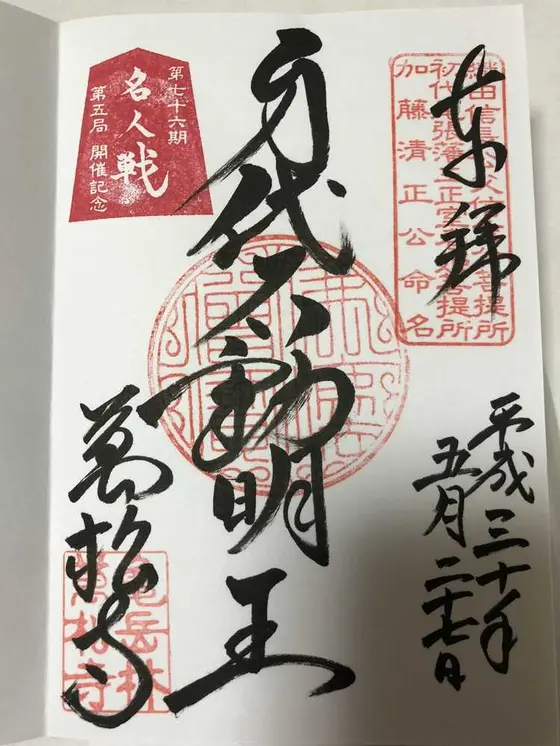 奉拝
織田信長公 菩提所
初代尾張藩主正室 菩提所
加藤清正公命名
平成三十年
五月二十七日
身代不動明王
第七十六期
名人戦
第五局 開催記念
萬松寺
亀岳林
萬松寺